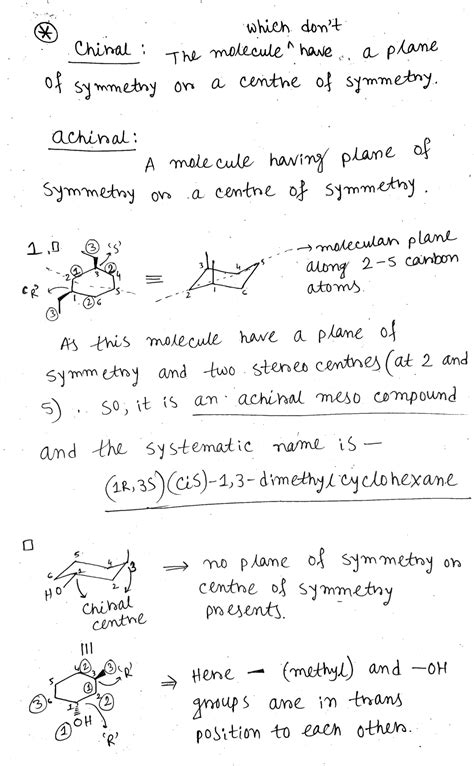 which don't
* Chiral : The molecule ^ have .. a plane
of symmetry or a centre of symmetry.
Achiral :
A molecule having plane of
symmetry or a centre of symmetry.
1,
3 'S'
2 1 3 2 4
'R' 1 2 6 5
3
≡
3 4 5
2 1 6
→ molecular plane
along 2-5 carbon
atoms.
As this molecule have a plane of
symmetry and two stereo centres (at 2 and
5). so, it is an achiral meso compound
and the systematic name is —
(1R,3S)(cis)-1,3-dimethylcyclohexane
5 4 3
6 1 2
HO
Chiral
centre
⇒ no plane of symmetry or
centre of symmetry
presents.
≡
4 2 3 3 'R'
5 1
3 6 1 2 2
1 OH
'R'
⇒ Here — (methyl) and -OH
groups are in trans
position to each other.